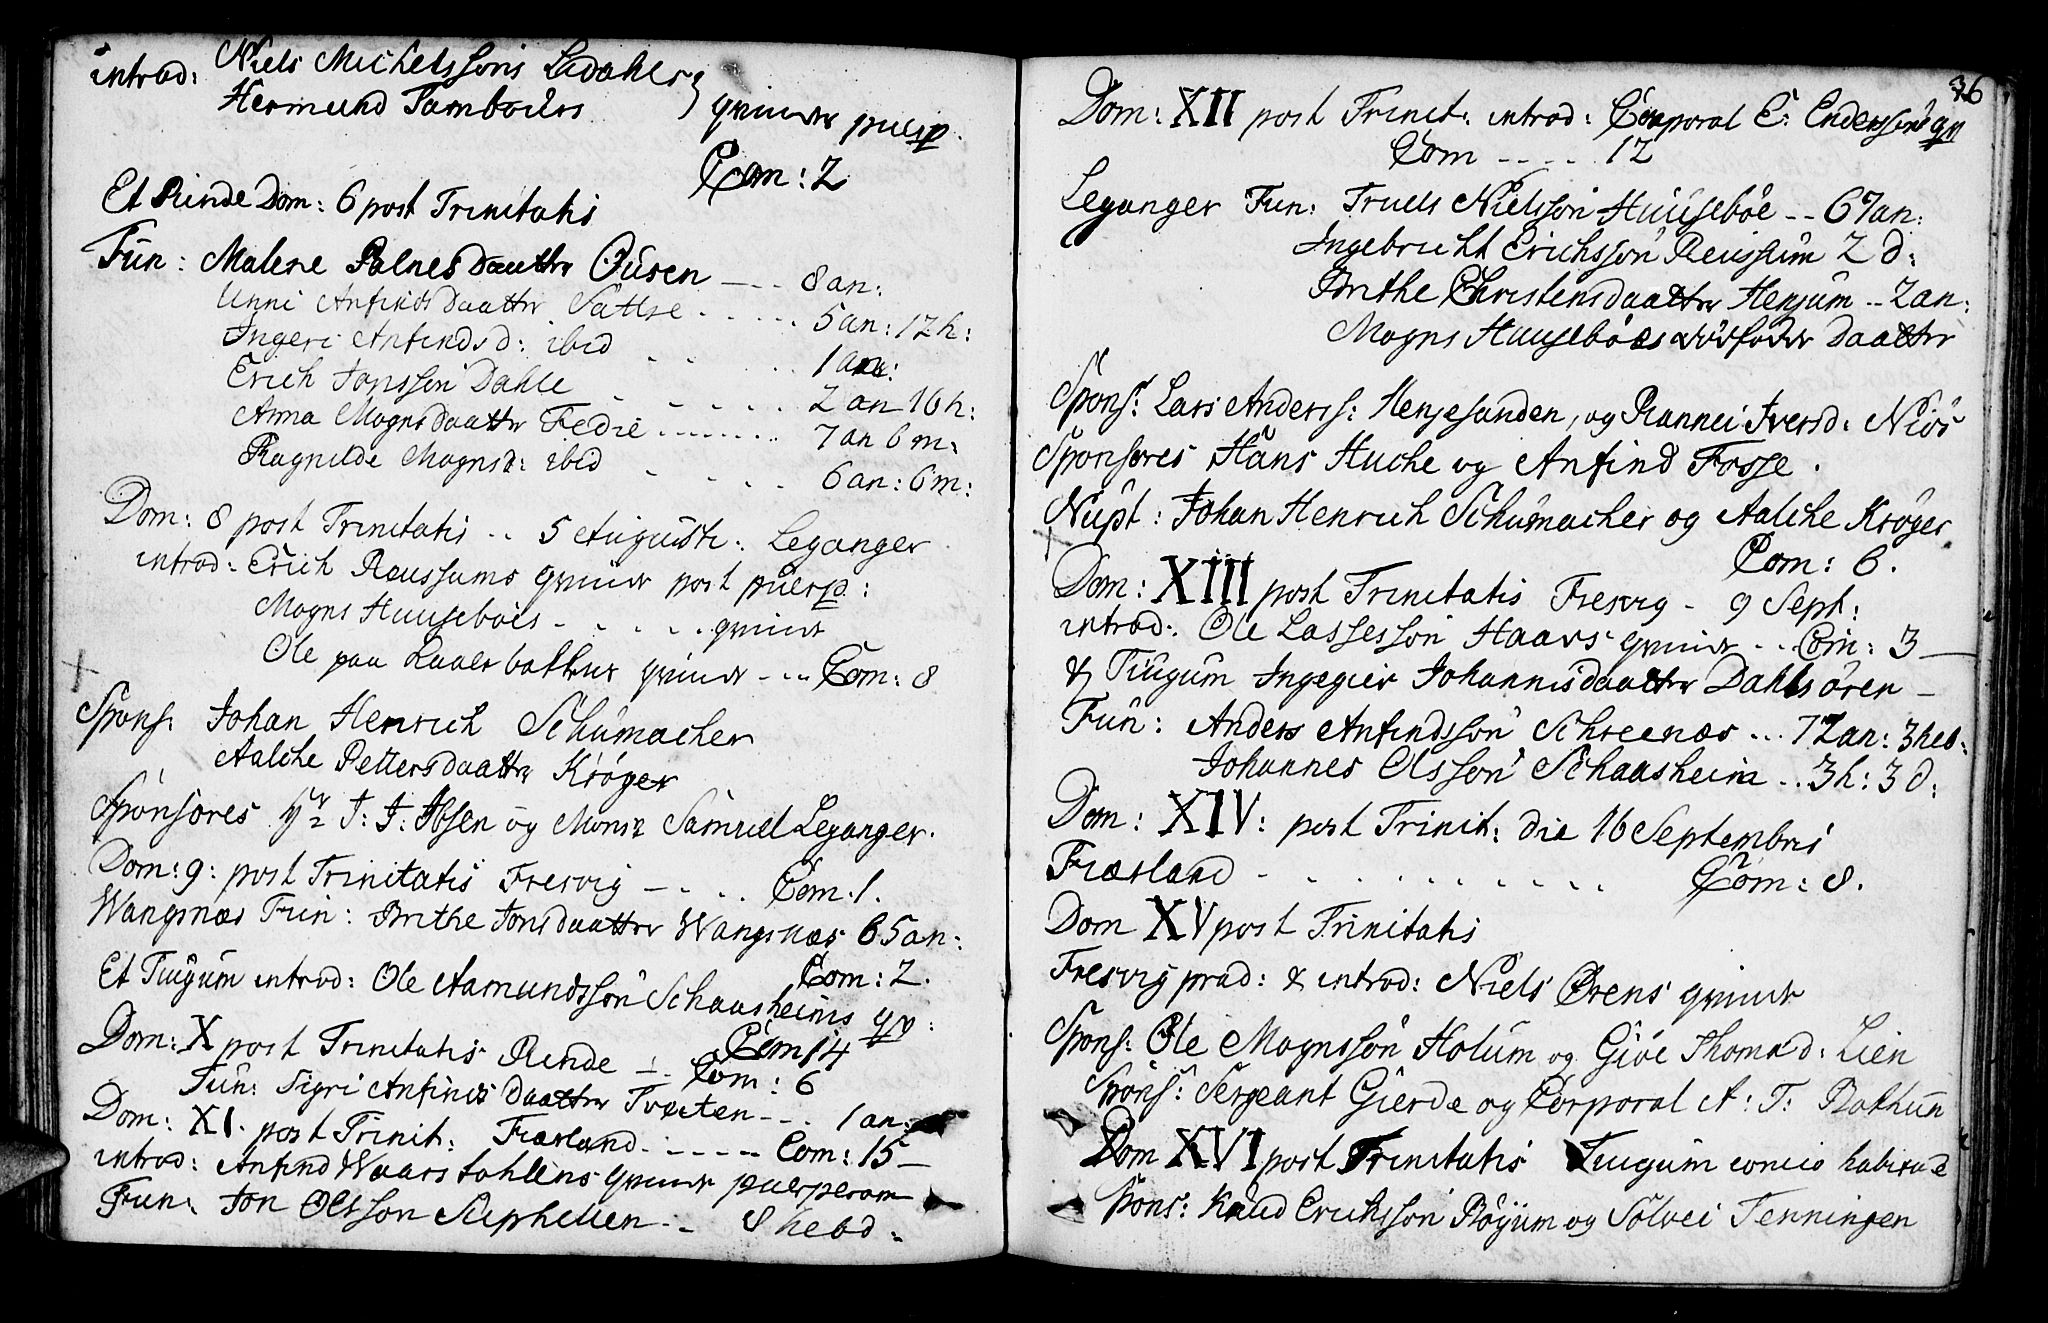 introd: Niels Michelssøns Ledahls
Hermund Tambours } qvinder puerp.
Com: 2
Et Rinde Dom: 6 post Trinitatis
Fun: Malene Palnesdaatter Øuren --- 8 an:
Unni Anfindsdaatter Sattre ..... 5 an: 12 h:
Ingeri Anfindsd: ibid .... 1 an:
Erich Jonssøn Dahle ..... 2 an 16 h:
Anna Mognsdaatter Fedie ....... 7 an 6 m:
Ragnilde Mognsd: ibid .... 6 an: 6 m:
Dom: 8 post Trinitatis .. 5 Augusti: Leganger
introd: Erich Reussums qvinde post puerp:
Mogns Huusebøes ..... qvinde
Ole paa qvinde --- Com: 8
Spons: Johan Henrich Schumacher
Aalche Pettersdaatter Krøger
Sponsores Hr J: J: Ibsen og Monsr Samuel Leganger.
Dom: 9: post Trinitatis Fresvig -... Com. 1.
Wangsnæs Fun: Brithe Jonsdaatter Wangsnæs 65 an:
Com: 2.
Et Tiugum introd: Ole Aamundssøn Schaasheims qv:
Com 14
Dom: X post Trinitatis Rinde -- Com: 6
Fun: Sigri Anfindsdaatter Tvæten --. 1 an:
Dom: XI. post Trinit: Fiærland .----- Com: 15 -
introd: Anfind Waarstøhlens qvinde puerperam
Fun: Jon Olssøn Stephellen .- 8 hebd:
36
Dom: XII post Trinit: introd: Corporal E: Enderssøns qv
Com ---. 12
Leganger Fun: Truels Nielssøn Huusebøe -- 67 an:
Ingebricht Erichssøn Reussum 2 d:
Brithe Christensdaatter Henjum .. 2 an:
Mogns Huusebøes dødføder daatter
Spons: Lars Anderss: Henjesanden, og Rannei Iversd: Niøs
Sponsores Hans Huche og Anfind Fosse.
Nupt: Johan Henrich Schumacher og Aalche Krøger
Com: 6.
Dom: XIII post Trinitatis Fresvig - 9 Sept:
introd: Ole Lassessøn Haavs qvinde .. Com: 3 -
& Tiugum Ingegier Johannisdaatter Dahlsøren -
Fun: Anders Anfindssøn Schreenæs ... 72 an: 3 heb:
Johannes Olssøn Schaasheim .. 3 h: 3 d:
Dom: XIV: post Trinit: die 16 Septembris
Fiærland - .......... Com: 8.
Dom XV post Trinitatis
Fresvig præd: & introd: Niels Ørens qvinde
Spons: Ole Mognssøn Holum og Giøe Thomæd: Lien
Spons: Sergeant Gierde og Corporal A: T: Bothun
Dom XVI post Trinitatis Tiugum concio habita e
Spons: Knud Erichssøn Røyum og Sølvei Tenningen